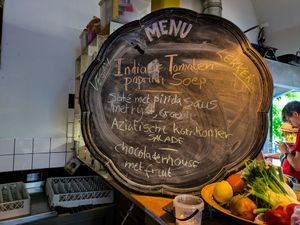 MENU
Indiase Tomaten
paprika Soep
Saté met pinda saus
met rijst, groente
Aziatische komkommer
SALADE
chocolademousse
met fruit